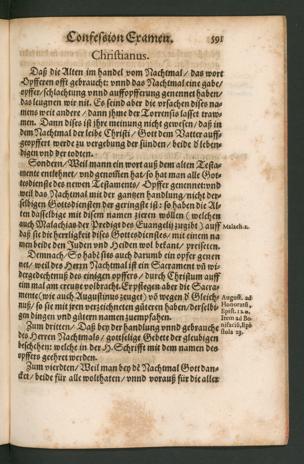 Confession Examen. 591
Christianus.
Daß die Alten im handel vom Nachtmal/ das wort
Opfferen offt gebraucht: vnnd das Nachtmal eine gabe/
opffer/ schlachtung vnnd auffopfferung genennet haben/
das leugnen wir nit. Es seind aber die vrsachen dises na-
mens weit andere/ dann jhme der Torrensis lasset traw-
men. Dann dises ist jhre meinung nicht gewesen/ daß in
dem Nachtmal der leibe Christi/ Gott dem Vatter auff-
geopffert werde zu vergebung der sünden/ beide ð leben-
digen und ð todten.
Sondern/ Weil mann ein wort auß dem alten Testa-
mente entlehnet/ vnd genommen hat/ so hat man alle Got-
tesdienste des newen Testaments/ Opffer genennet: vnd
weil das Nachtmal mit der gantzen handlung/ nicht der-
selbigen Gottesdiensten der geringste ist: so haben die Al-
ten dasselbige mit disem namen zieren wöllen (welchen
auch Malachias der Predigt des Euangelij zugibt) auff
daß sie die herrligkeit dises Gottesdienstes/ mit einem na
men beide den Juden vnd Heiden wol bekant/ preiseten.
Malach. 1.
Demnach/ So habē sies auch darumb ein opfer genen
net/ weil des Herrn Nachtmal ist ein Sacrament vō wi-
dergedechtnuß des einigen opffers/ durch Christum auff
ein mal am creutz volbracht. Es pflegen aber die Sacra-
mente (wie auch Augustinus zeuget) vō wegen ð Gleich-
nuß/ so sie mit jren verzeichneten güteren haben/ derselbi-
gen dingen vnd gütern namen zuempfahen.
August. ad
Bonifaciū, Epi
stola 23.
Zum dritten/ Daß bey der handlung vnnd gebrauche
des Herren Nachtmals/ gottselige Gebete der gleubigen
beschehen: welche in der H. Schrifft mit dem namen des
opffers geehret werden.
Zum vierdten/ Weil man bey dē Nachtmal Gott dan-
cket/ beide für alle wolthaten/ vnnd vorauß für die aller